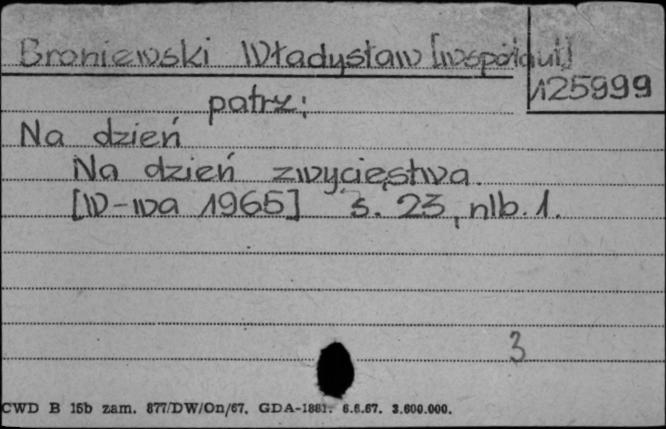 Broniewski Władysław [współaut.]
125999
patrz:
Na dzień
Na dzień zwycięstwa.
[W-wa 1965] s. 23, nlb. 1.
3
CWD B 15b zam. 877/DW/On/67. GDA-1881. 6.6.67. 3.600.000.